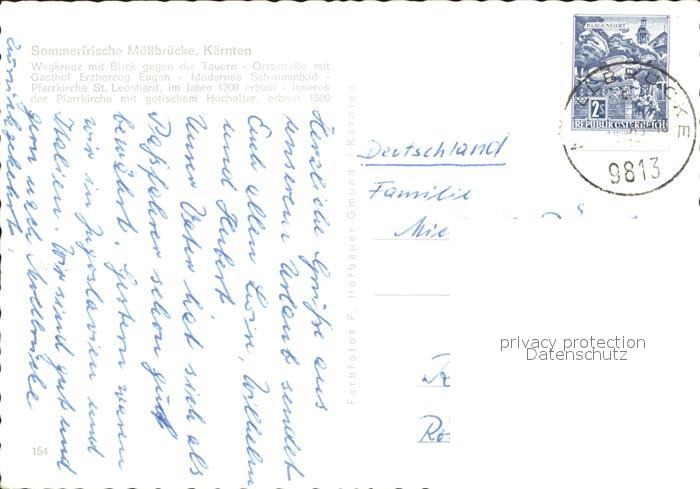 Sommerfrische Möllbrücke, Kärnten
Wegkreuz mit Blick gegen die Tauern - Ortsstraße mit
Gasthof Erzherzog Eugen - Modernes Schwimmbad -
Pfarrkirche St. Leonhard, im Jahre 1200 erbaut - Inneres
der Pfarrkirche mit gotischem Hochaltar, erbaut 1520
Herzliche Grüße aus
unserem Urlaub sendet
Euch allen Erwin, Wilhelm
und Hubert
Unser Vater hat sich als
Paßfahrer schon gut
bewährt. Gestern waren
wir in Jugoslavien und
Italien. Wir sind gut und
gern nach Möllbrücke
zurückgekehrt.
154
Farbfotos F. Hofbauer Gmünd / Kärnten
KLAGENFURT
2S
REPUBLIK ÖSTERREICH
MÖLLBRÜCKE
9813
Deutschland
Familie
privacy protection
Datenschutz